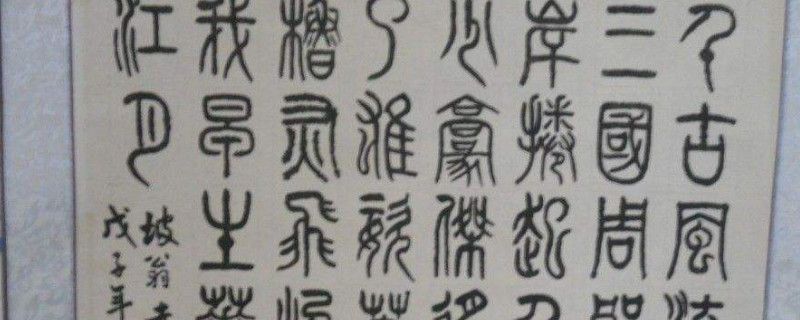 千古風流
三國周郎
岸捲起千
少豪傑
了雄姿英
櫓灰飛
我早生華
江月
坡翁
戊子年